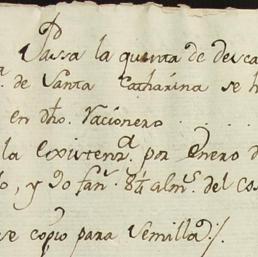 Passa la quenta de desca
ª. de Santa Catharina se h
en dho. Racionero . . . .
la Existenzª. por Enero d
o, y 20 fanˢ. 8¼ almˢ. del co
se copio para Semilla./.